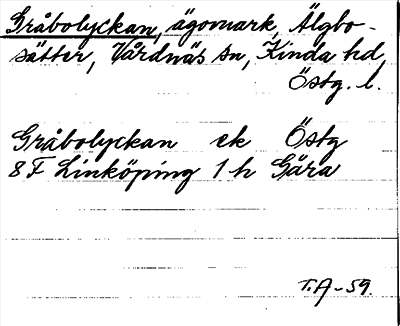 Gråbolyckan, ägomark, Älgbo-
sätter, Vårdnäs sn, Kinda hd,
Östg. l.
Gråbolyckan ek Östg
8 F Linköping 1 h Gåra
T.A-59.